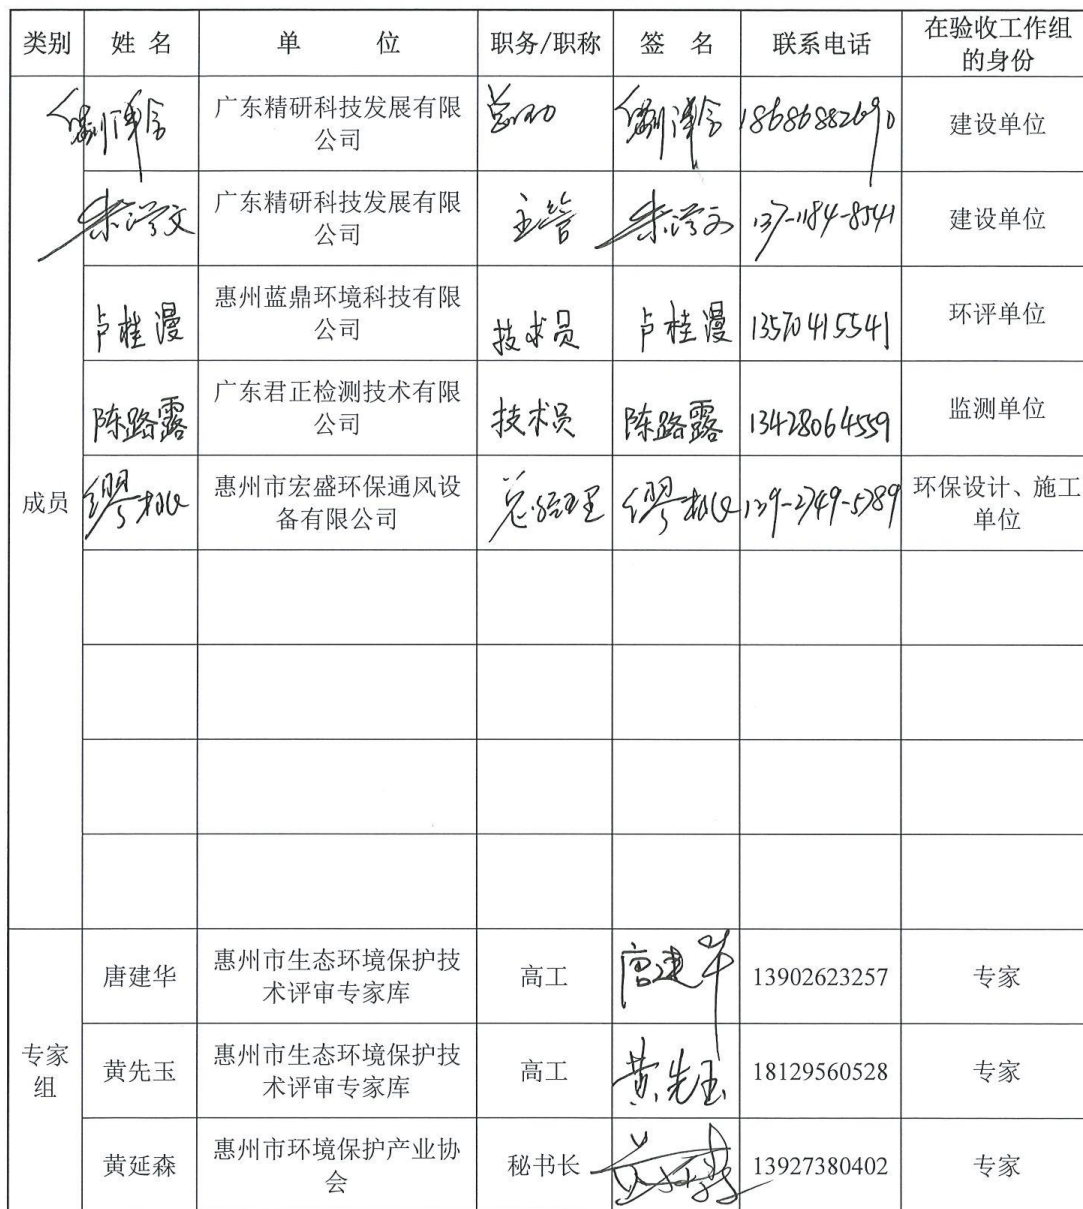 类别 姓 名 单 位 职务/职称 签 名 联系电话 在验收工作组
的身份
广东精研科技发展有限
公司 建设单位
广东精研科技发展有限
公司 主管 137-1184-8541 建设单位
卢桂漫 惠州蓝鼎环境科技有限
公司 技术员 卢桂漫 13570415541 环评单位
陈路露 广东君正检测技术有限
公司 技术员 陈路露 13428064559 监测单位
成员 惠州市宏盛环保通风设
备有限公司 总经理 139-2749-5789 环保设计、施工
单位
唐建华 惠州市生态环境保护技
术评审专家库 高工 唐建华 13902623257 专家
专家
组 黄先玉 惠州市生态环境保护技
术评审专家库 高工 黄先玉 18129560528 专家
黄延森 惠州市环境保护产业协
会 秘书长 13927380402 专家